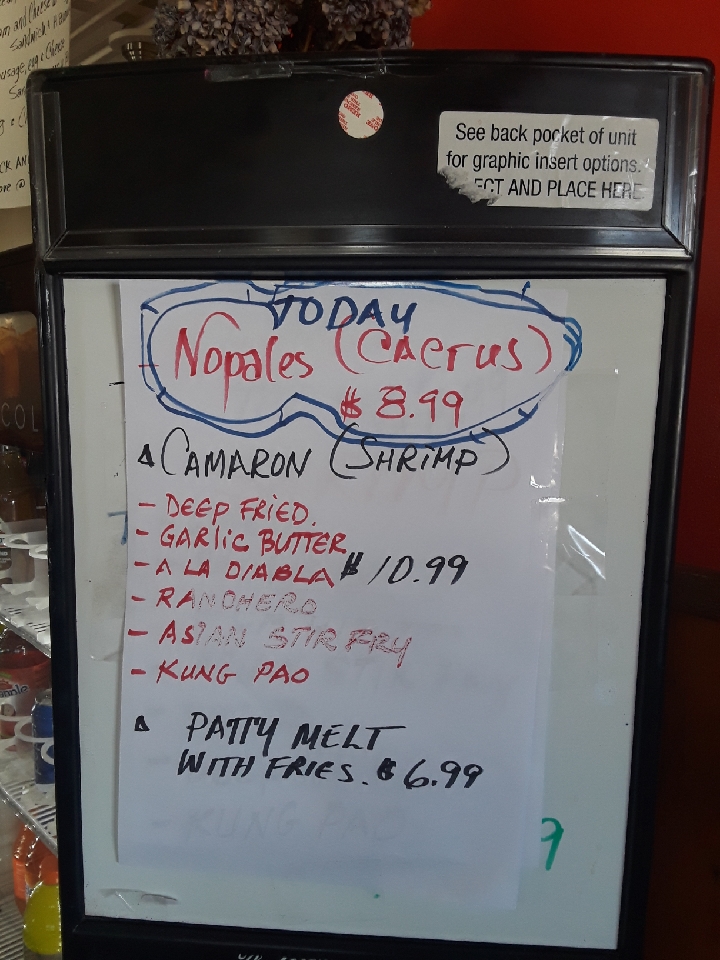 See back pocket of unit
for graphic insert options.
AND PLACE HERE
TODAY
- Nopales (Cactus)
$ 8.99
CAMARON (SHRIMP)
- DEEP FRIED.
- GARLIC BUTTER
- A LA DIABLA $ 10.99
- RANCHERO
- ASIAN STIR FRY
- KUNG PAO
PATTY MELT
WITH FRIES. $ 6.99
- KUNG PAO
9
COL